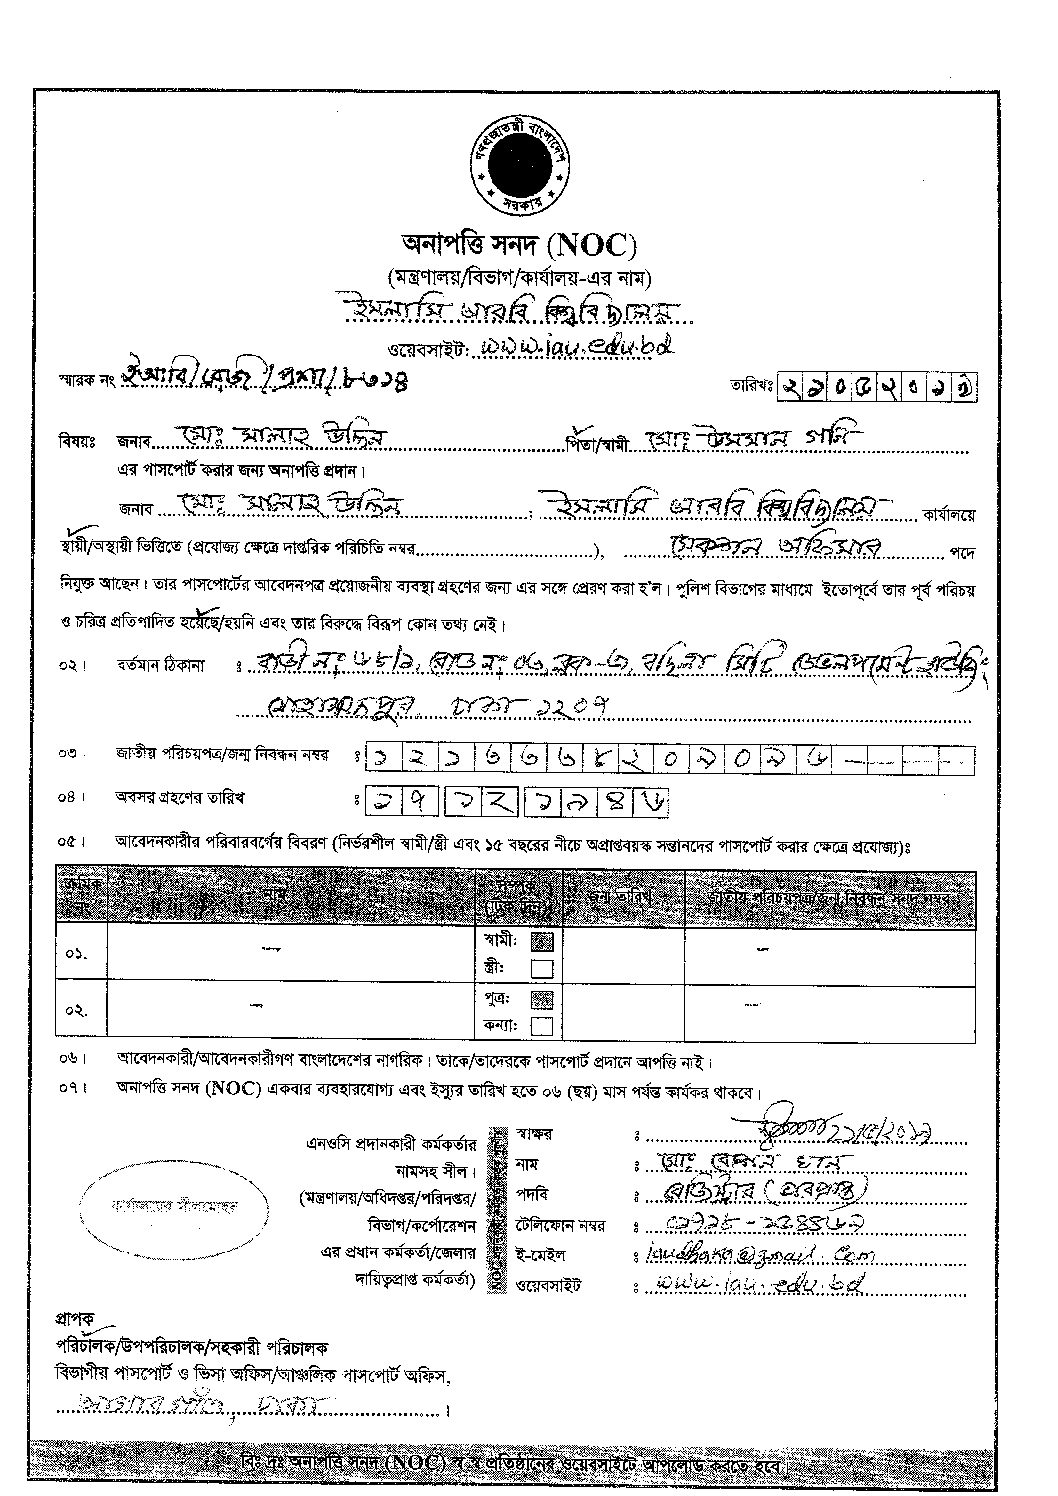 গণপ্রজাতন্ত্রী বাংলাদেশ
সরকার
অনাপত্তি সনদ (NOC)
(মন্ত্রণালয়/বিভাগ/কার্যালয়-এর নাম)
ইসলামি আরবি বিশ্ববিদ্যালয়
ওয়েবসাইট: www.iau.edu.bd
স্মারক নং ইআবি/রেজি/প্রশা/ তারিখঃ
বিষয়ঃ জনাব মোঃ সালাহ উদ্দিন পিতা/স্বামী মোঃ ওসমান গনি
এর পাসপোর্ট করার জন্য অনাপত্তি প্রদান।
জনাব মোঃ সালাহ উদ্দিন , ইসলামি আরবি বিশ্ববিদ্যালয় কার্যালয়ে
স্থায়ী/অস্থায়ী ভিত্তিতে (প্রযোজ্য ক্ষেত্রে দাপ্তরিক পরিচিতি নম্বর..............................), সেকশন অফিসার পদে
নিযুক্ত আছেন। তার পাসপোর্টের আবেদনপত্র প্রয়োজনীয় ব্যবস্থা গ্রহণের জন্য এর সঙ্গে প্রেরণ করা হ'ল। পুলিশ বিভাগের মাধ্যমে ইতোপূর্বে তার পূর্ব পরিচয়
ও চরিত্র প্রতিপাদিত হয়েছে/হয়নি এবং তার বিরুদ্ধে বিরূপ কোন তথ্য নেই।
০২। বর্তমান ঠিকানা ঃ বাড়ী নং রোড নং ০৬, ব্লক- বছিলা সিটি
মোহাম্মদপুর ঢাকা ১২০৭
০৩. জাতীয় পরিচয়পত্র/জন্ম নিবন্ধন নম্বর ঃ
০৪। অবসর গ্রহণের তারিখ ঃ
০৫। আবেদনকারীর পরিবারবর্গের বিবরণ (নির্ভরশীল স্বামী/স্ত্রী এবং ১৫ বছরের নীচে অপ্রাপ্তবয়স্ক সন্তানদের পাসপোর্ট করার ক্ষেত্রে প্রযোজ্য)ঃ
ক্রমিক নং নাম সম্পর্ক (টিক দিন) জন্ম তারিখ জাতীয় পরিচয়পত্র/জন্ম নিবন্ধন সনদ নম্বর
০১. — স্বামী: —
স্ত্রী:
০২. — পুত্র: —
কন্যা:
০৬। আবেদনকারী/আবেদনকারীগণ বাংলাদেশের নাগরিক। তাকে/তাদেরকে পাসপোর্ট প্রদানে আপত্তি নাই।
০৭। অনাপত্তি সনদ (NOC) একবার ব্যবহারযোগ্য এবং ইস্যুর তারিখ হতে ০৬ (ছয়) মাস পর্যন্ত কার্যকর থাকবে।
এনওসি প্রদানকারী কর্মকর্তার
নামসহ সীল।
(মন্ত্রণালয়/অধিদপ্তর/পরিদপ্তর/
বিভাগ/কর্পোরেশন
এর প্রধান কর্মকর্তা/জেলার
দায়িত্বপ্রাপ্ত কর্মকর্তা)
কার্যালয়ের সীলমোহর
স্বাক্ষর ঃ
নাম ঃ মোঃ রোশন খান
পদবি ঃ রেজিস্ট্রার (ভারপ্রাপ্ত)
টেলিফোন নম্বর ঃ
ই-মেইল ঃ iaudhaka@gmail.com
ওয়েবসাইট ঃ www.iau.edu.bd
প্রাপক
পরিচালক/উপপরিচালক/সহকারী পরিচালক
বিভাগীয় পাসপোর্ট ও ভিসা অফিস/আঞ্চলিক পাসপোর্ট অফিস,
আগারগাঁও, ঢাকা।
বিঃ দ্রঃ অনাপত্তি সনদ (NOC) স্ব স্ব প্রতিষ্ঠানের ওয়েবসাইটে আপলোড করতে হবে।